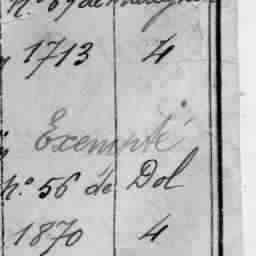 1713 4
Exempté
n.o 56 de Dol
1870 4